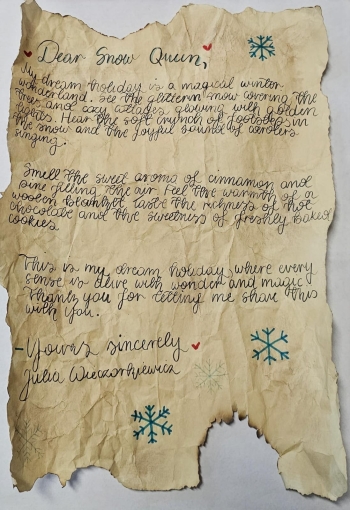 Dear Snow Queen,
My dream holiday is a magical winter
wonderland. See the glittern snow covering the
trees and cozy cottages glowing with golden
lights. Hear the soft crunch of footsteps in
the snow and the joyful sound of carolers
singing.
Smell the sweet aroma of cinnamon and
pine filling the air. Feel the warmth of a
woolen blanket, taste the richness of hot
chocolate and the sweetness of freshly baked
cookies
This is my dream holiday, where every
sense is alive with wonder and magic
Thank you for letting me share this
with you.
-Yours sincerely
Julia Wieczorkiewicz